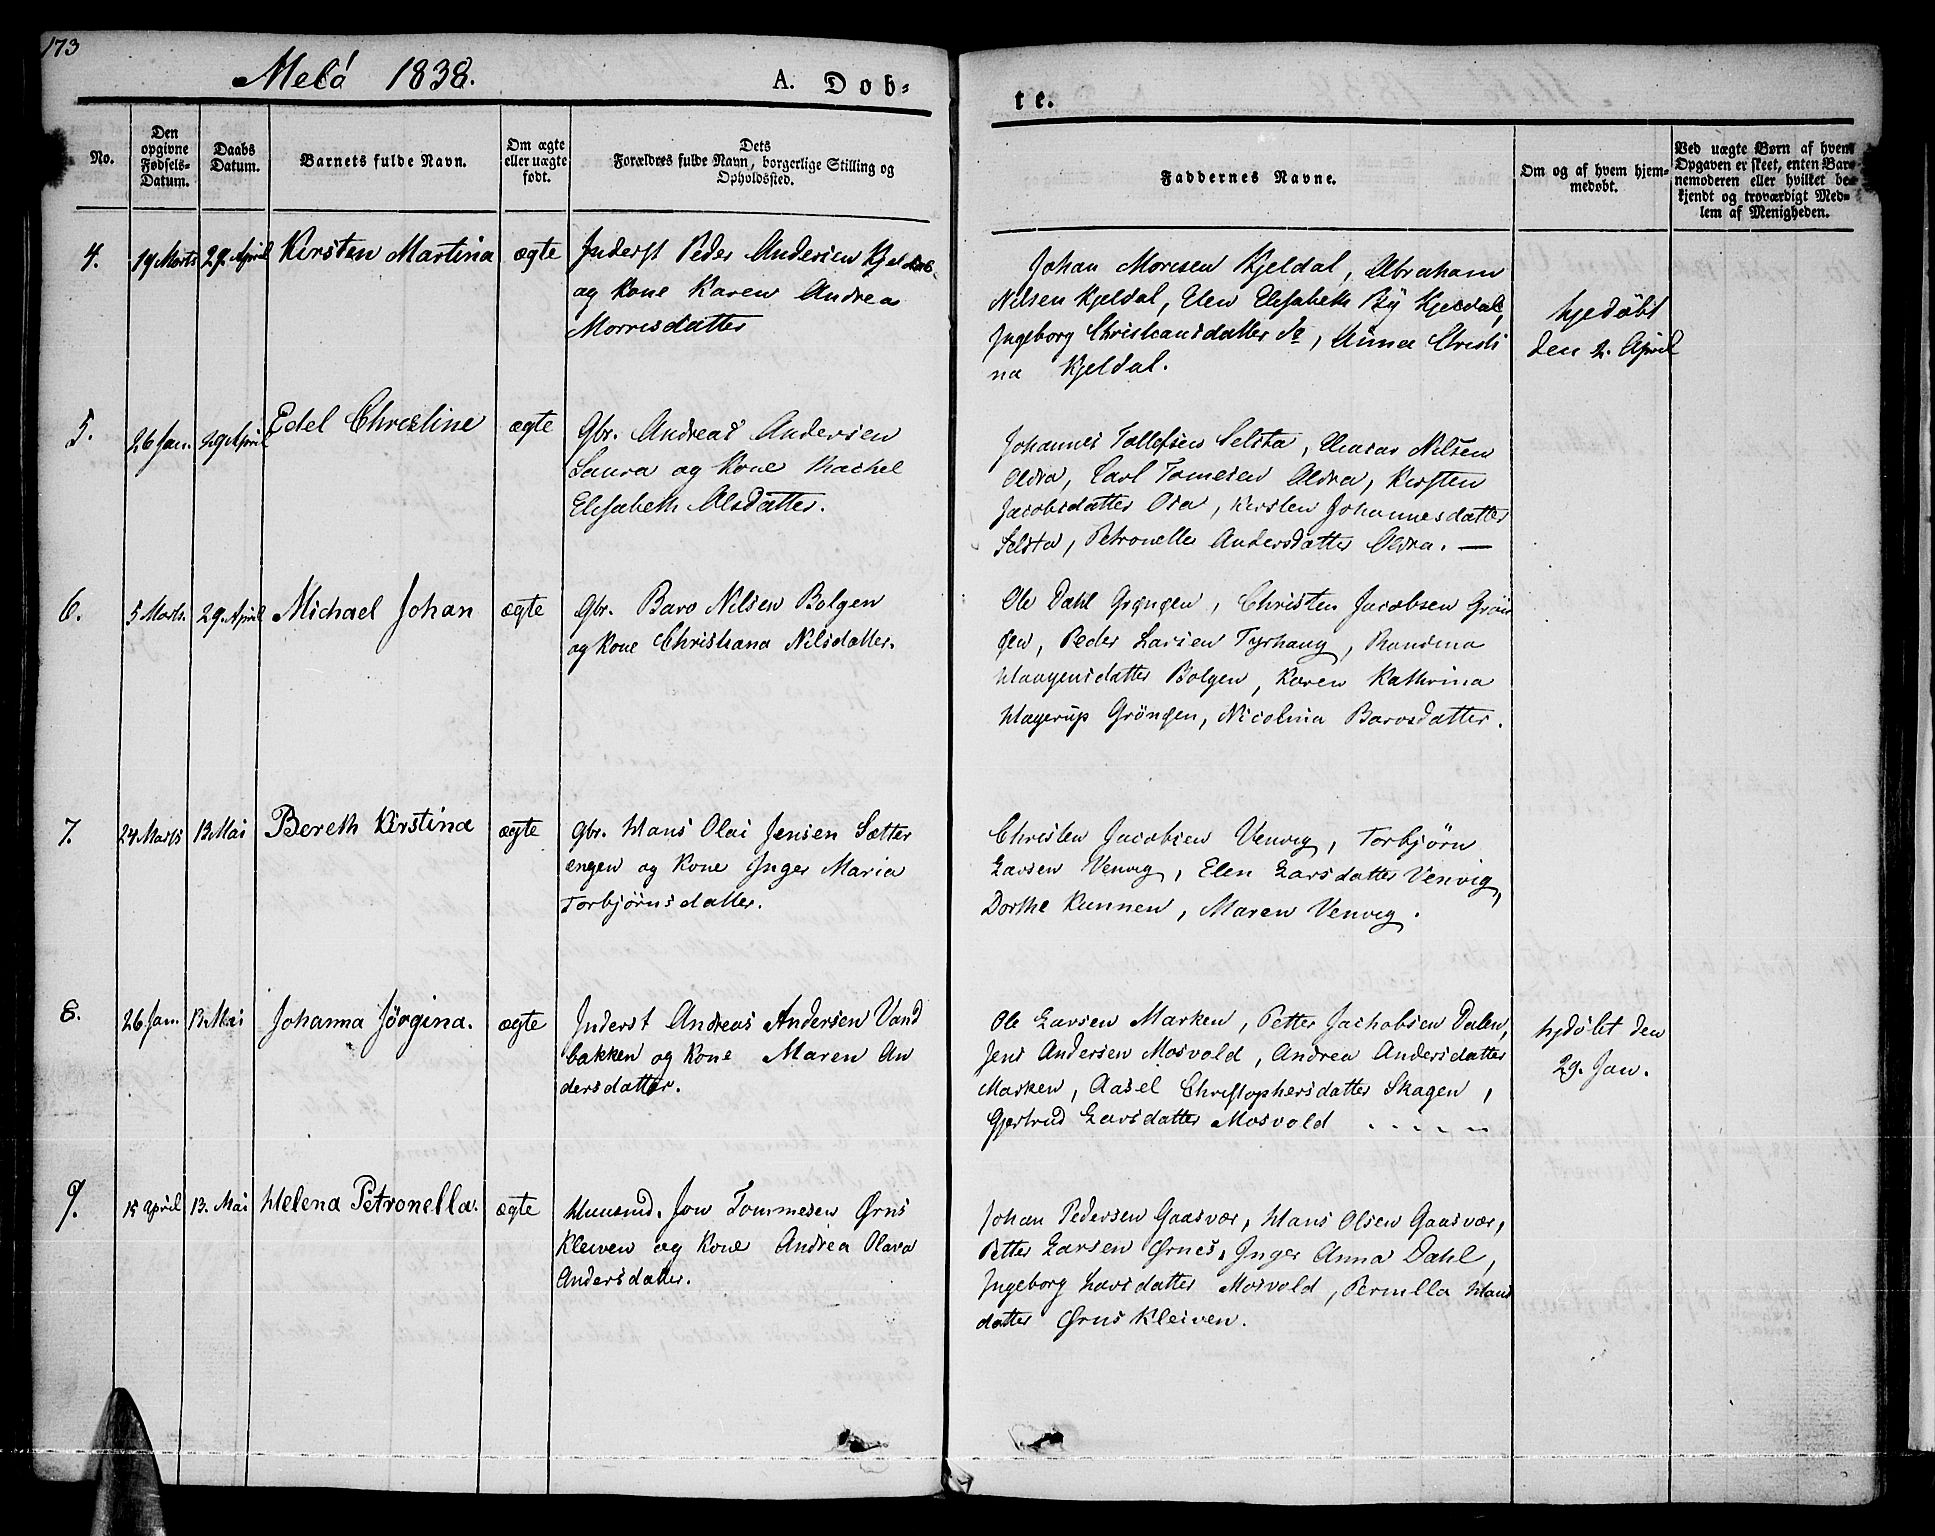 173
Melö 1838.
A. Dob-
te.
No.
Den opgivne Fødsels-Datum.
Daabs Datum.
Barnets fulde Navn.
Om ægte eller uægte født.
Dets Forældres fulde Navn, borgerlige Stilling og Opholdssted.
Faddernes Navne.
Om og af hvem hjem-medøbt.
Ved uægte Børn af hvem Opgaven er skeet, enten Bar-nemoderen eller hvilket be-kjendt og troværdigt Med-lem af Menigheden.
4. 19 Marts 29. April Kirsten Martina ægte
Inderst Peder Andersen Kjeldal
og Kone Karen Andrea
Morrisdatter
Johan Moresen Kjeldal, Abraham
Nilsen Kjeldal, Elen Elisabeth By Kjeldal,
Ingeborg Christiansdatter do, Anna Christi
na Kjeldal.
hjedøbt
den 2. April
5. 26 Jan. 29 April Edel Christine ægte
Gbr. Andreas Andersen
Saura og Kone Rachel
Elisabeth Alsdatter.
Johannes Tollefsen Selsta, Eleasar Nilsen
Aldra, Carl Tomesen Aldra, Kirsten
Jacobsdatter Osa, Kirsten Johannesdatter
Selsta, Petronelle Andersdatter Aldra. —
6. 5 Marts. 29. April Michael Johan ægte
Gbr. Baro Nilsen Bolgen
og Kone Christiana Nilsdatter.
Ole Dahl Grøngen, Christen Jacobsen Grøn
gen, Peder Larsen Tyrhaug, Ransina
Haagensdatter Bolgen, Karen Kathrina
Hagerup Gröngen, Nicolina Barosdatter.
7. 24 Marts 13 Mai Bereth Kirstina ægte
Gbr. Hans Olai Jensen Sætter
engen og Kone Inger Maria
Torbjørnsdatter.
Christen Jacobsen Venvig, Torbjørn
Larsen Venvig, Elen Larsdatter Venvig,
Dorthe Kunnen, Maren Venvig.
8. 26 Jan. 13 Mai Johanna Jörgina. ægte
Inderst Andreas Andersen Vand
bakken og Kone Maren An
dersdatter.
Ole Larsen Marken, Petter Jachobsen Dalen,
Jens Andersen Mosvold, Andrea Andersdatter
Marken, Aasel Christophersdatter Skagen,
Gjertrud Larsdatter Mosvold
hjdøbt den
29. Jan.
9. 15 April 13. Mai Helena Petronella. ægte
Huusmd. Jon Tommesen Ørns
kleiven og Kone Andrea Olava
Andersdatter.
Johan Pedersen Gaasvær, Hans Olsen Gaasvær,
Petter Larsen Ørnes, Inger Anna Dahl,
Ingeborg Larsdatter Mosvold, Pernilla Hans
datter Ørnskleiven.